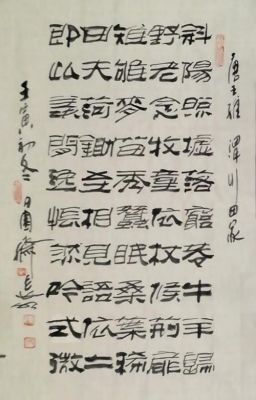 唐王維 渭川田家
斜陽照墟落窮巷牛羊歸
野老念牧童倚杖候荊扉
雉雊麥苗秀蠶眠桑葉稀
田夫荷鋤至相見語依二
即此羨閒逸悵然吟式微
壬寅初冬